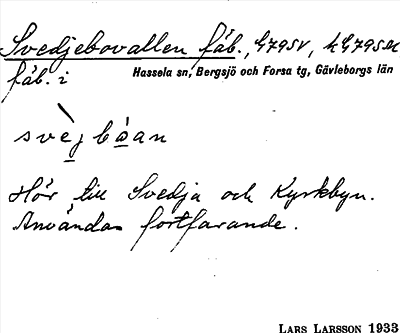 Svedjebovallen fäb., G7950V, h G7950M
fäb. i Hassela sn, Bergsjö och Forsa tg, Gävleborgs län
svèjbɷ̀an
Hör till Svedja och Kyrkbyn.
Användas fortfarande.
LARS LARSSON 1933